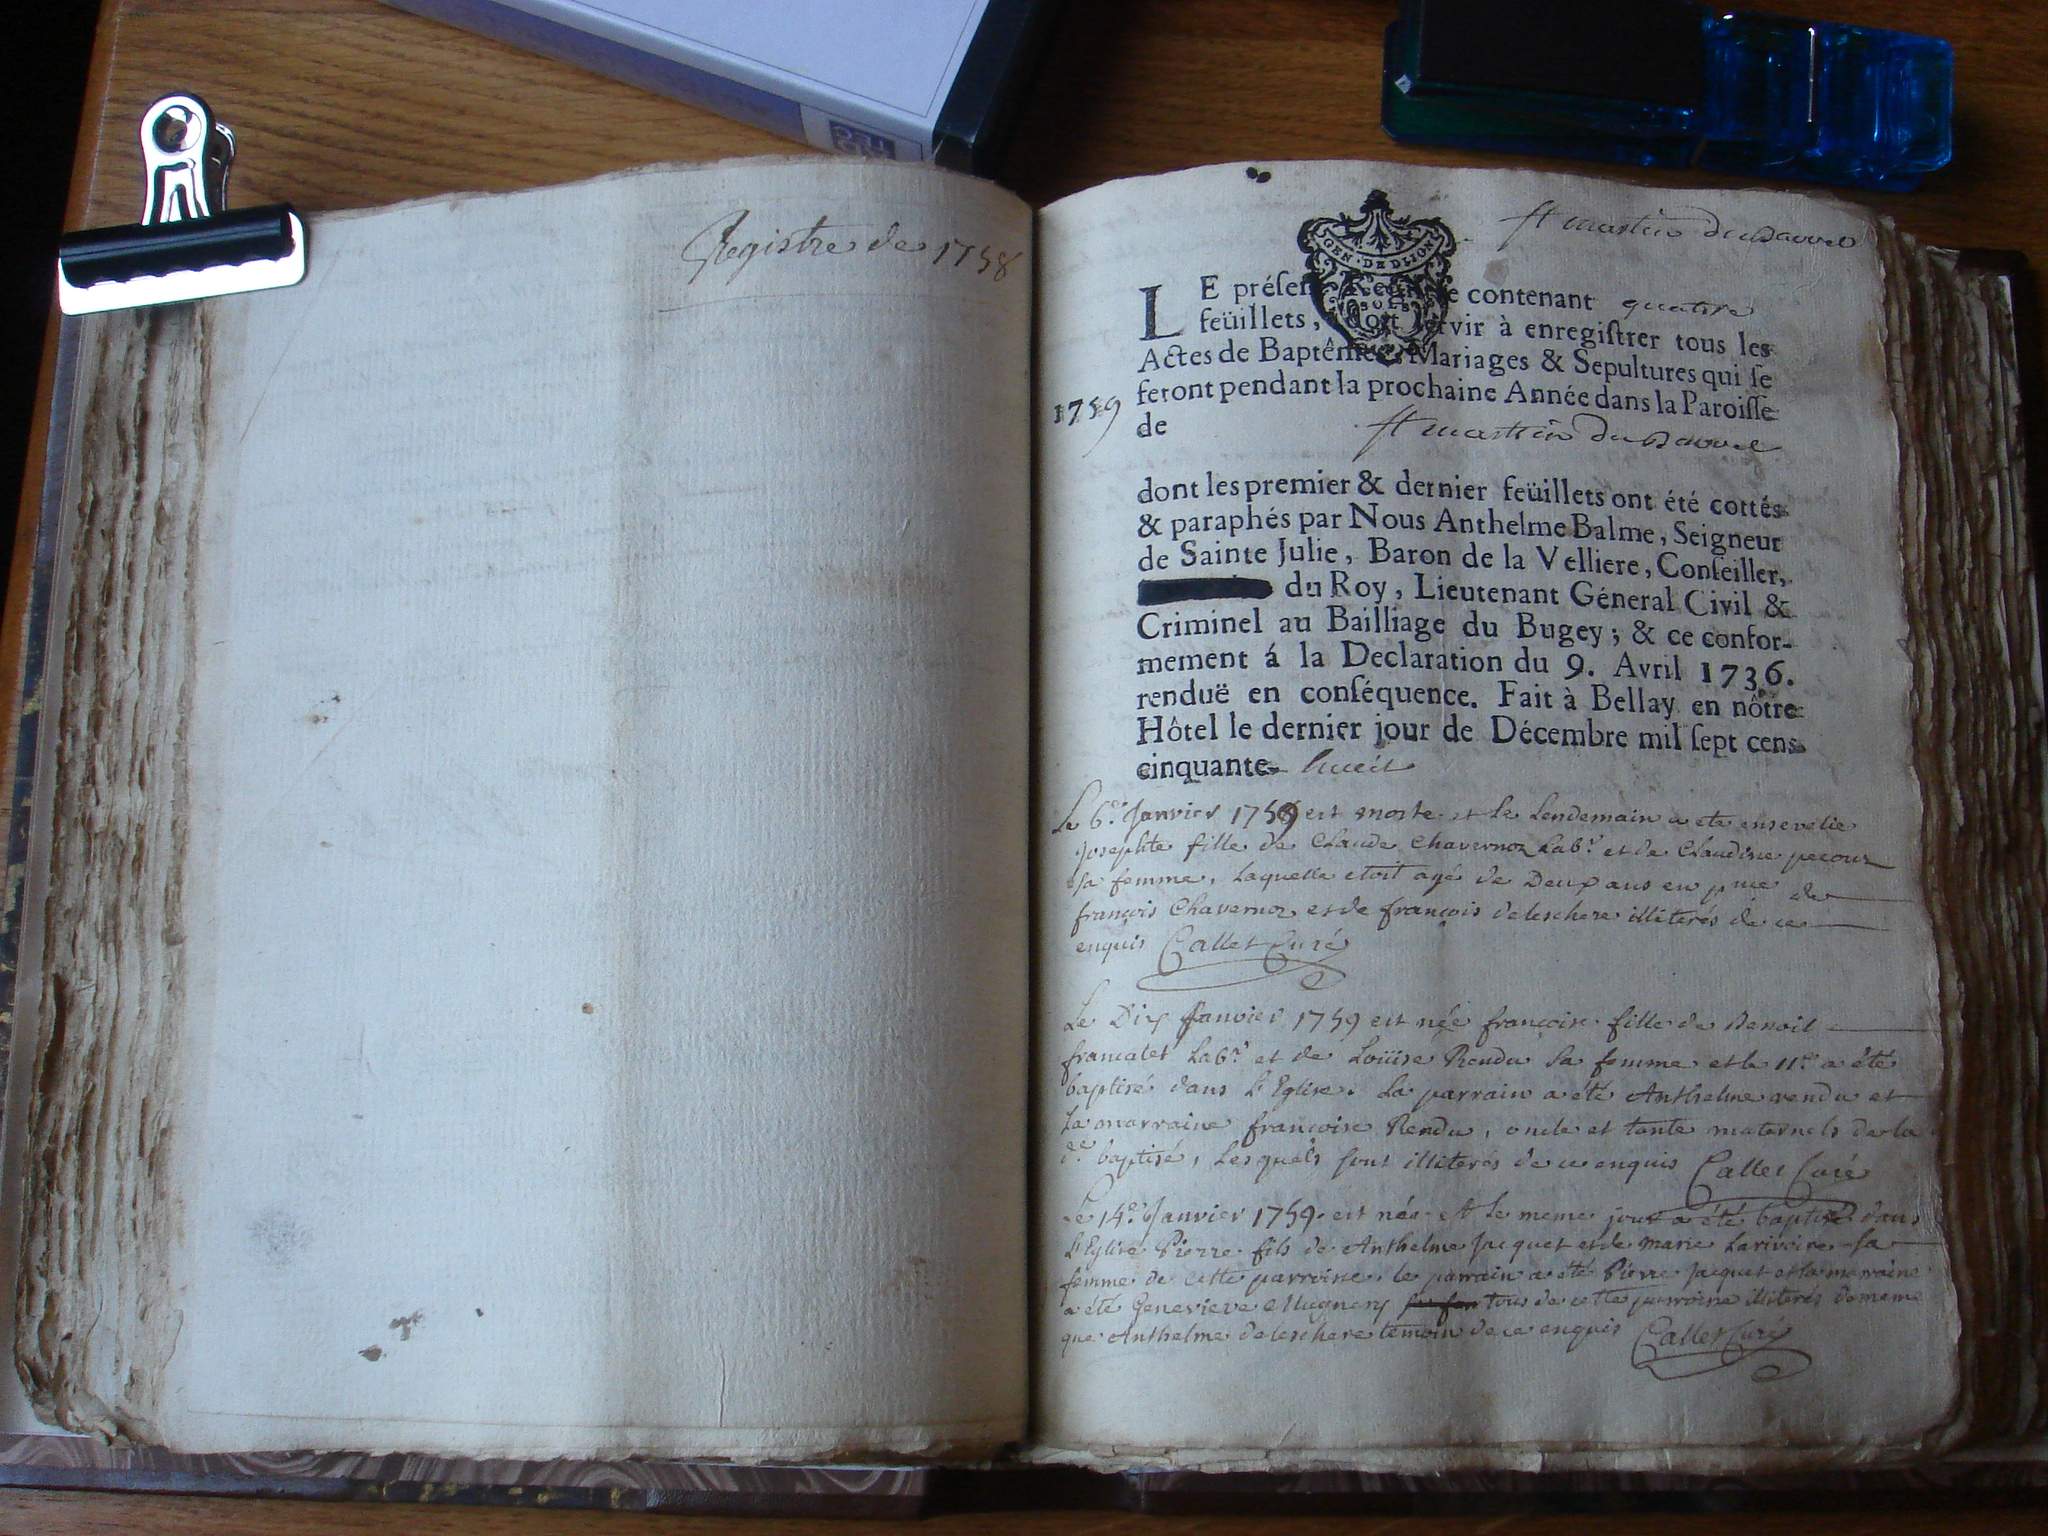 Registre de 1758
st martin du Bavvel
GEN · DE DLION
SOLS
LE préſent Regiſtre contenant quatre
feüillets, doit ſervir à enregiſtrer tous les
Actes de Baptêmes, Mariages & Sepultures qui ſe
feront pendant la prochaine Année dans la Paroiſſe
1759
de st martin du Bavvel
dont les premier & dernier feüillets ont été cottés
& paraphés par Nous Anthelme Balme, Seigneur
de Sainte Julie, Baron de la Velliere, Conſeiller,
du Roy, Lieutenant Géneral Civil &
Criminel au Bailliage du Bugey; & ce confor-
mement á la Declaration du 9. Avril 1736.
renduë en conſéquence. Fait à Bellay en nôtre
Hôtel le dernier jour de Décembre mil ſept cens
cinquante- hueit
Le 6e. Janvier 1759 est morte et le Lendemain a ete ensevelie
Josephte fille de Claude Chavernoz Labr. et de Claudine pecour
sa femme, Laquelle etoit agé de Deux ans en pnce de
françois Chavernoz et de françois deleschere illiterés de ce
enquis Callet Curé
Le Dix Janvier 1759 est née françoise fille de Benoit
francatet Labr. et de Loüise Rendu sa femme et le 11e. a été
baptisé dans L'Eglise. La parrain a été Anthelme rendu et
La marraine françoise Rendu, oncle et tante maternels de la
de. baptisé, Lesquels sont illiterés de ce enquis Callet Curé
Le 14e. Janvier 1759. est née et le meme jour a été baptisé dans
L'Eglise Pierre fils de Anthelme Jacquet et de marie Larivoire sa
femme de cette parroisse. le parrain a été Pierre Jacquet et la marraine
a été Genevieve Mugnery tous de cette parroisse illiterés de meme
que Anthelme deleschere temoin de ce enquis Callet Curé